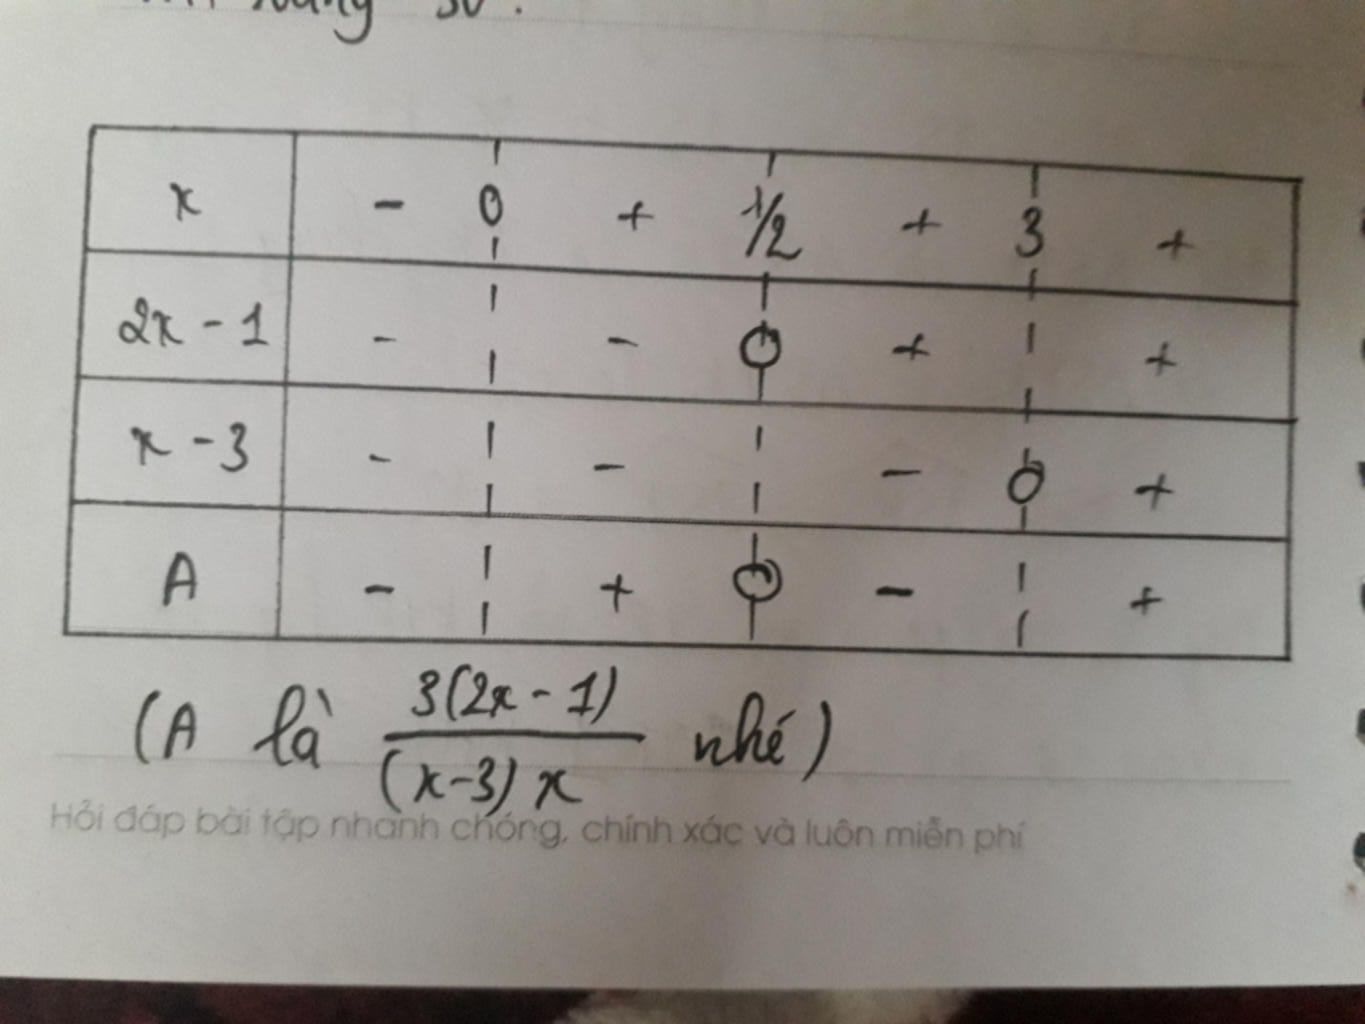 x - 0 + 1/2 + 3 +
2x - 1 - - 0 + +
x - 3 - - - 0 +
A - + 0 - +
(A là 3(2x - 1) / (x-3) x nhé)
Hỏi đáp bài tập nhanh chóng, chính xác và luôn miễn phí